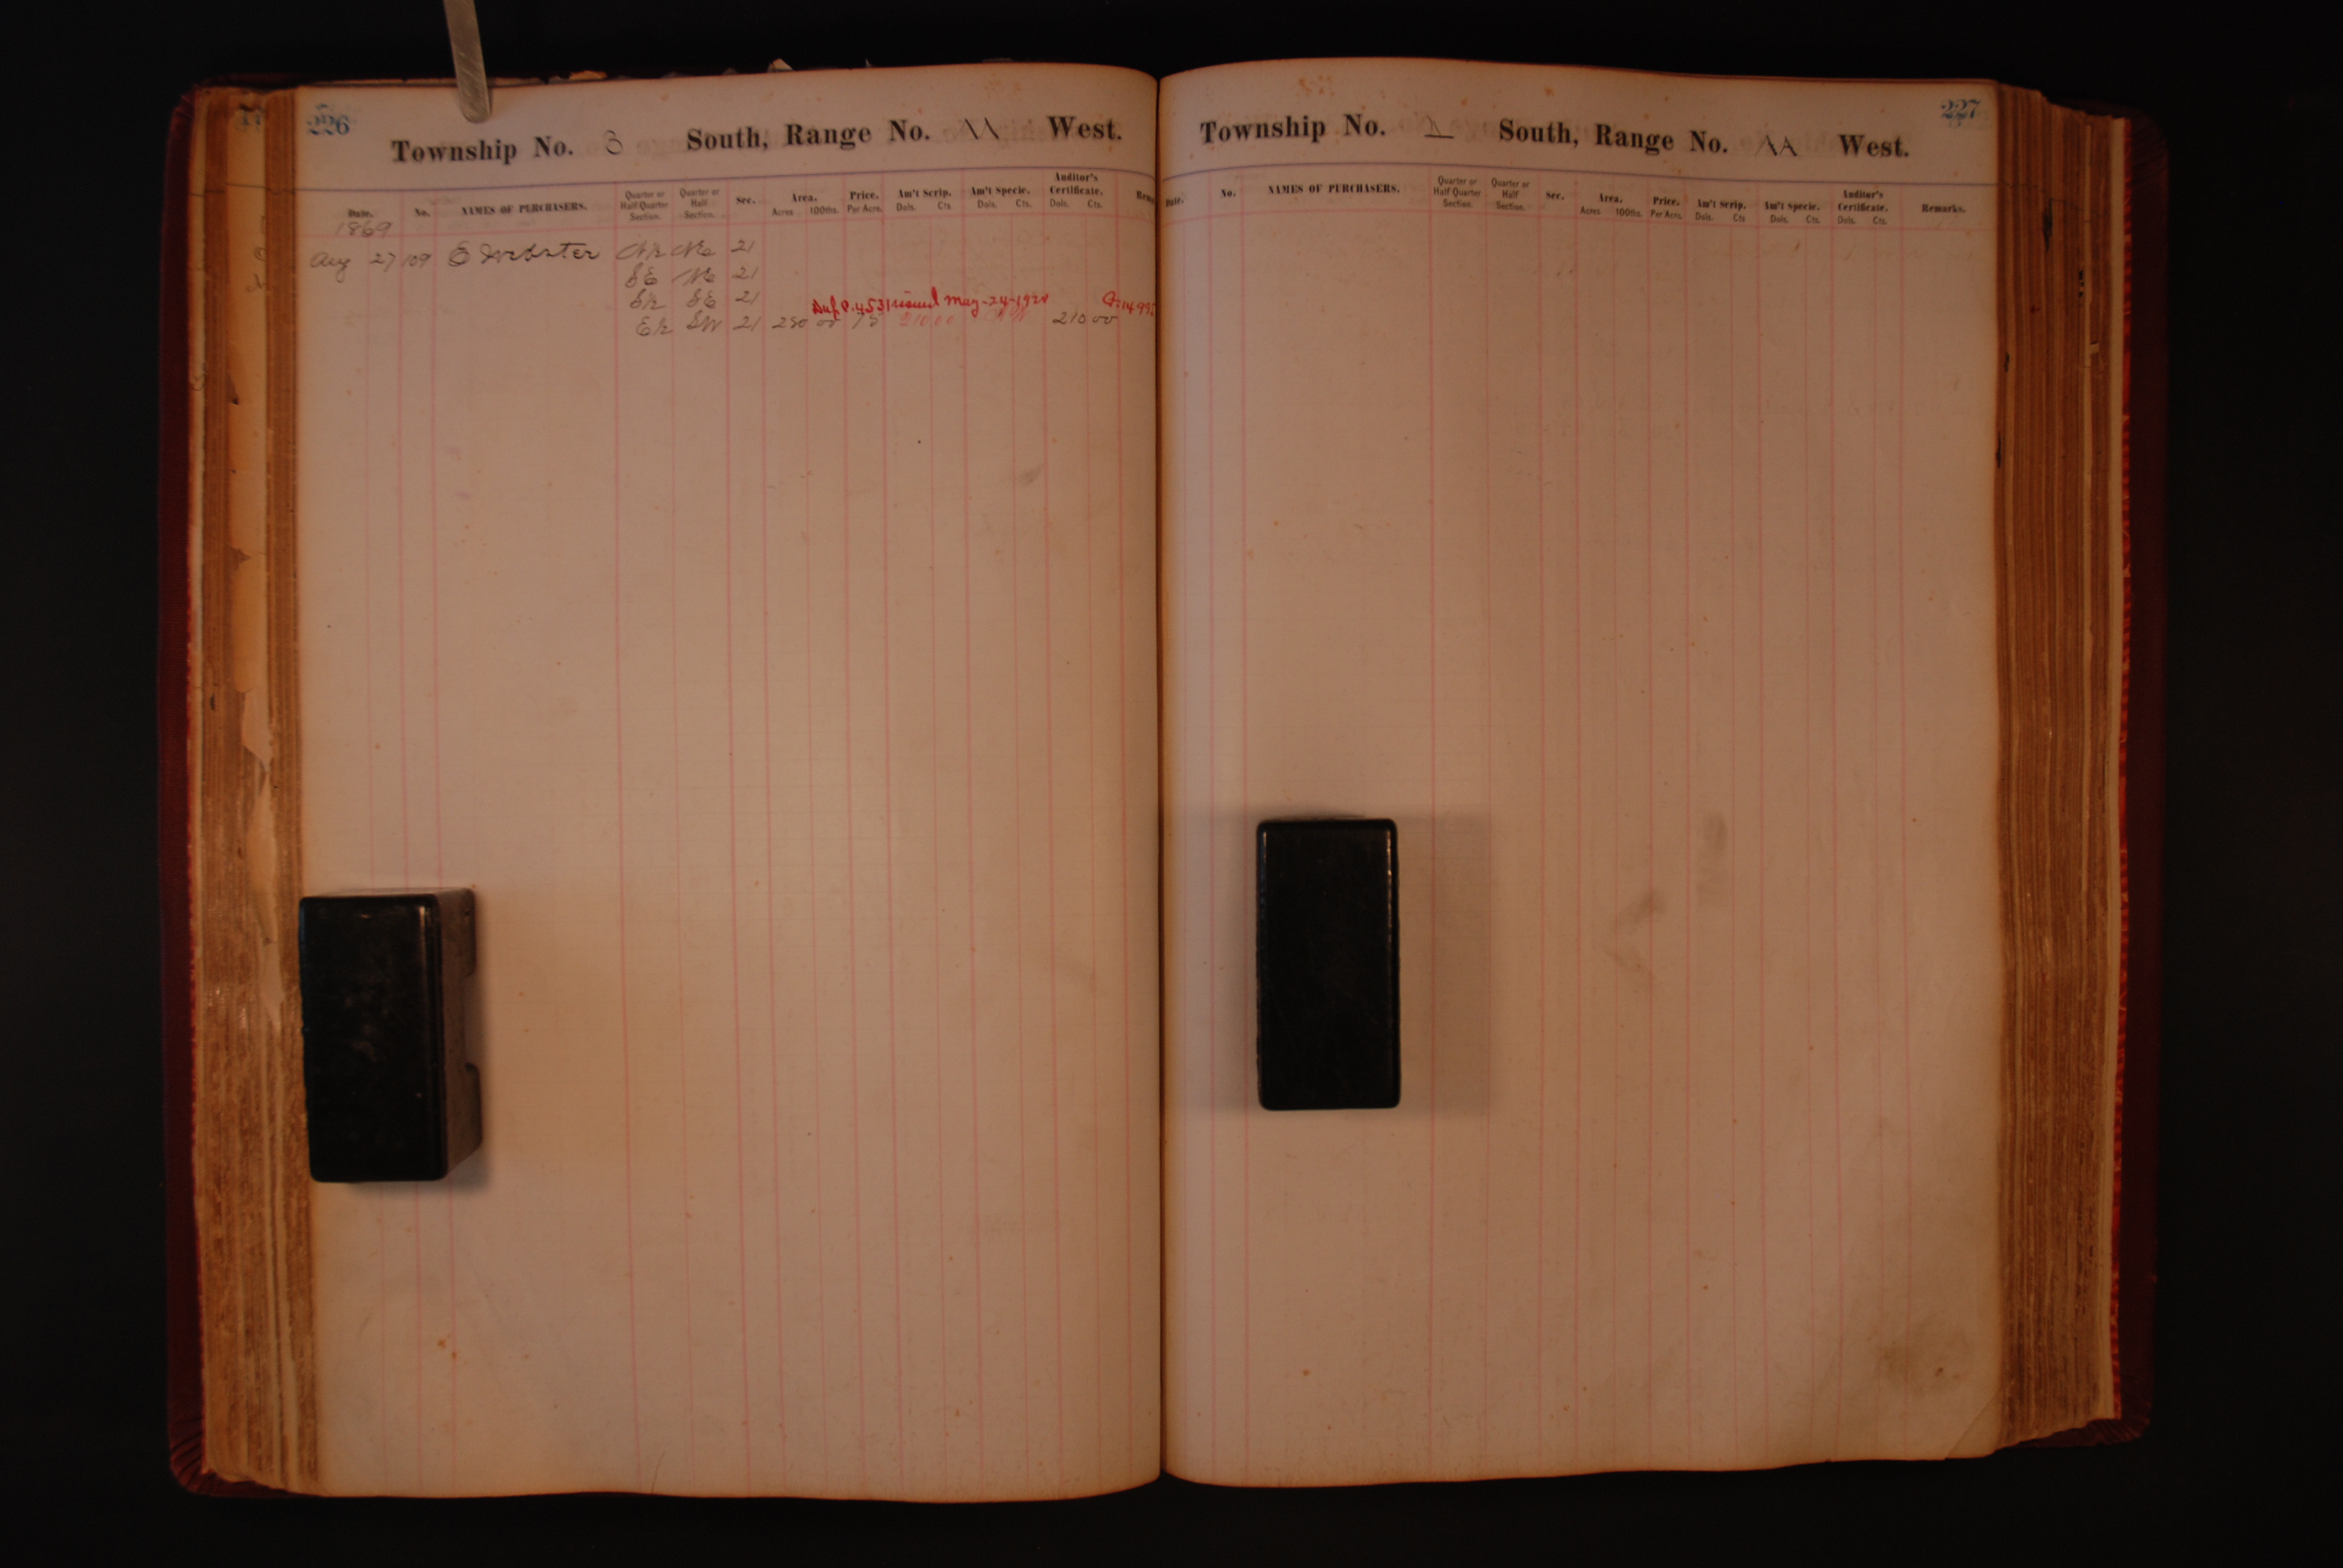 226
Township No. 3 South, Range No. 11 West.
Date. No. NAMES OF PURCHASERS. Quarter or Half Quarter Section. Quarter or Half Section. Sec. Area. Acres 100ths. Price. Per Acre. Am't Scrip. Dols. Cts Am't Specie. Dols. Cts. Auditor's Certificate. Dols. Cts.
1869
Aug 27 109 E Webster N½ NE 21
SE NE 21
S½ SE 21
Dup P. 4531 issued May-24-1920
E½ SW 21 280 00 75 210 00 210 00
227
Township No. South, Range No. 11 West.
Date. No. NAMES OF PURCHASERS. Quarter or Half Quarter Section. Quarter or Half Section. Sec. Area. Acres 100ths. Price. Per Acre. Am't Scrip. Dols. Cts Am't Specie. Dols. Cts. Auditor's Certificate. Dols. Cts. Remarks.